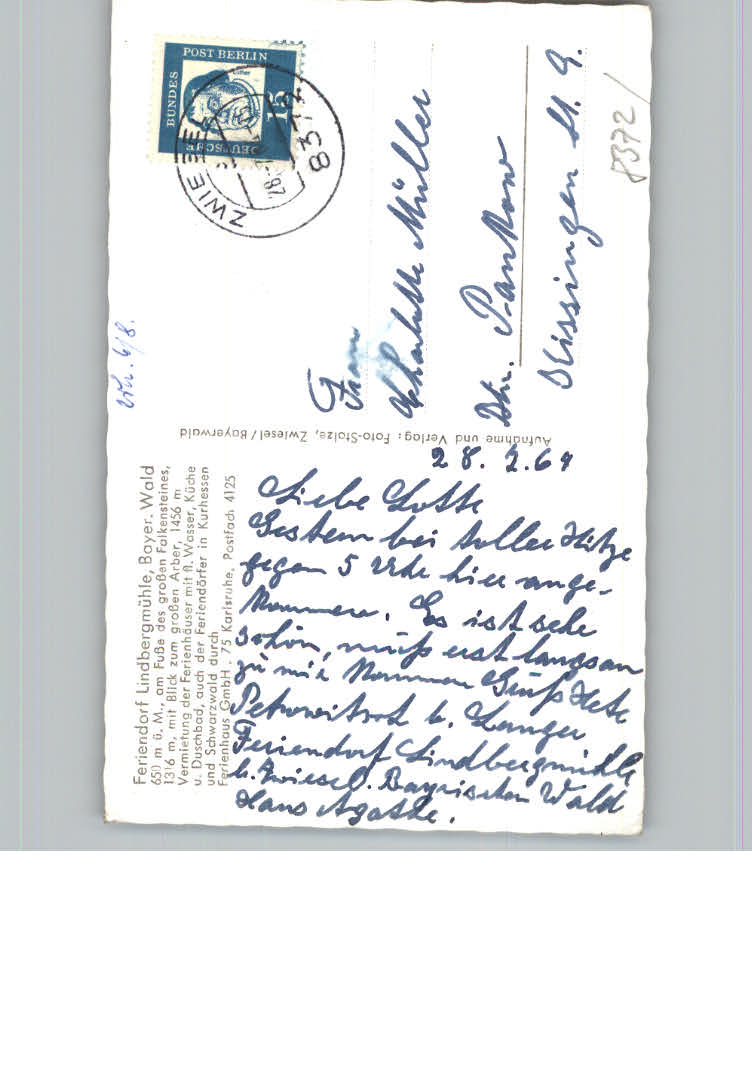 Feriendorf Lindbergmühle, Bayer. Wald
650 m ü. M., am Fuße des großen Falkensteines,
1316 m, mit Blick zum großen Arber, 1456 m
Vermietung der Ferienhäuser mit fl. Wasser, Küche
u. Duschbad, auch der Feriendörfer in Kurhessen
und Schwarzwald durch
Ferienhaus GmbH, 75 Karlsruhe, Postfach 4125
28. 7. 64
Liebe Lotte
Gestern bei toller Hitze
gegen 5 Uhr hier ange-
kommen. Es ist sehr
schön, muß erst langsam
zu mir kommen Gruß Hete
b. Langer
Feriendorf Lindbergmühle
b. Zwiesel. Bayrischen Wald
Haus Agathe.
Aufnahme und Verlag: Foto-Stolze, Zwiesel/Bayerwald
6/8.
DEUTSCHE BUNDESPOST BERLIN
Luther
15
ZWIESEL
8372
Frau
Charlotte Müller
Pankow
8372